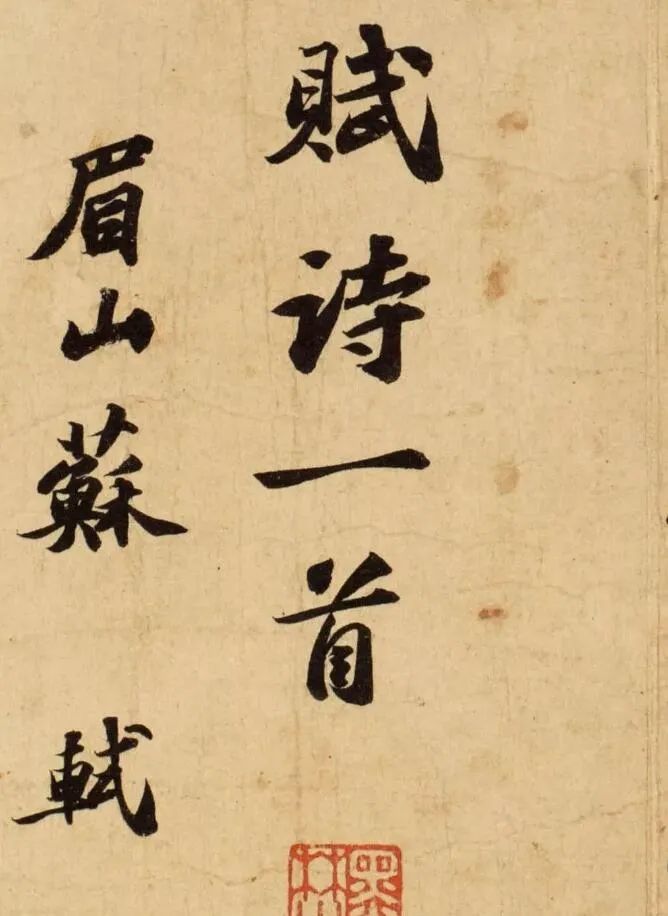 賦诗一首
眉山蘇軾